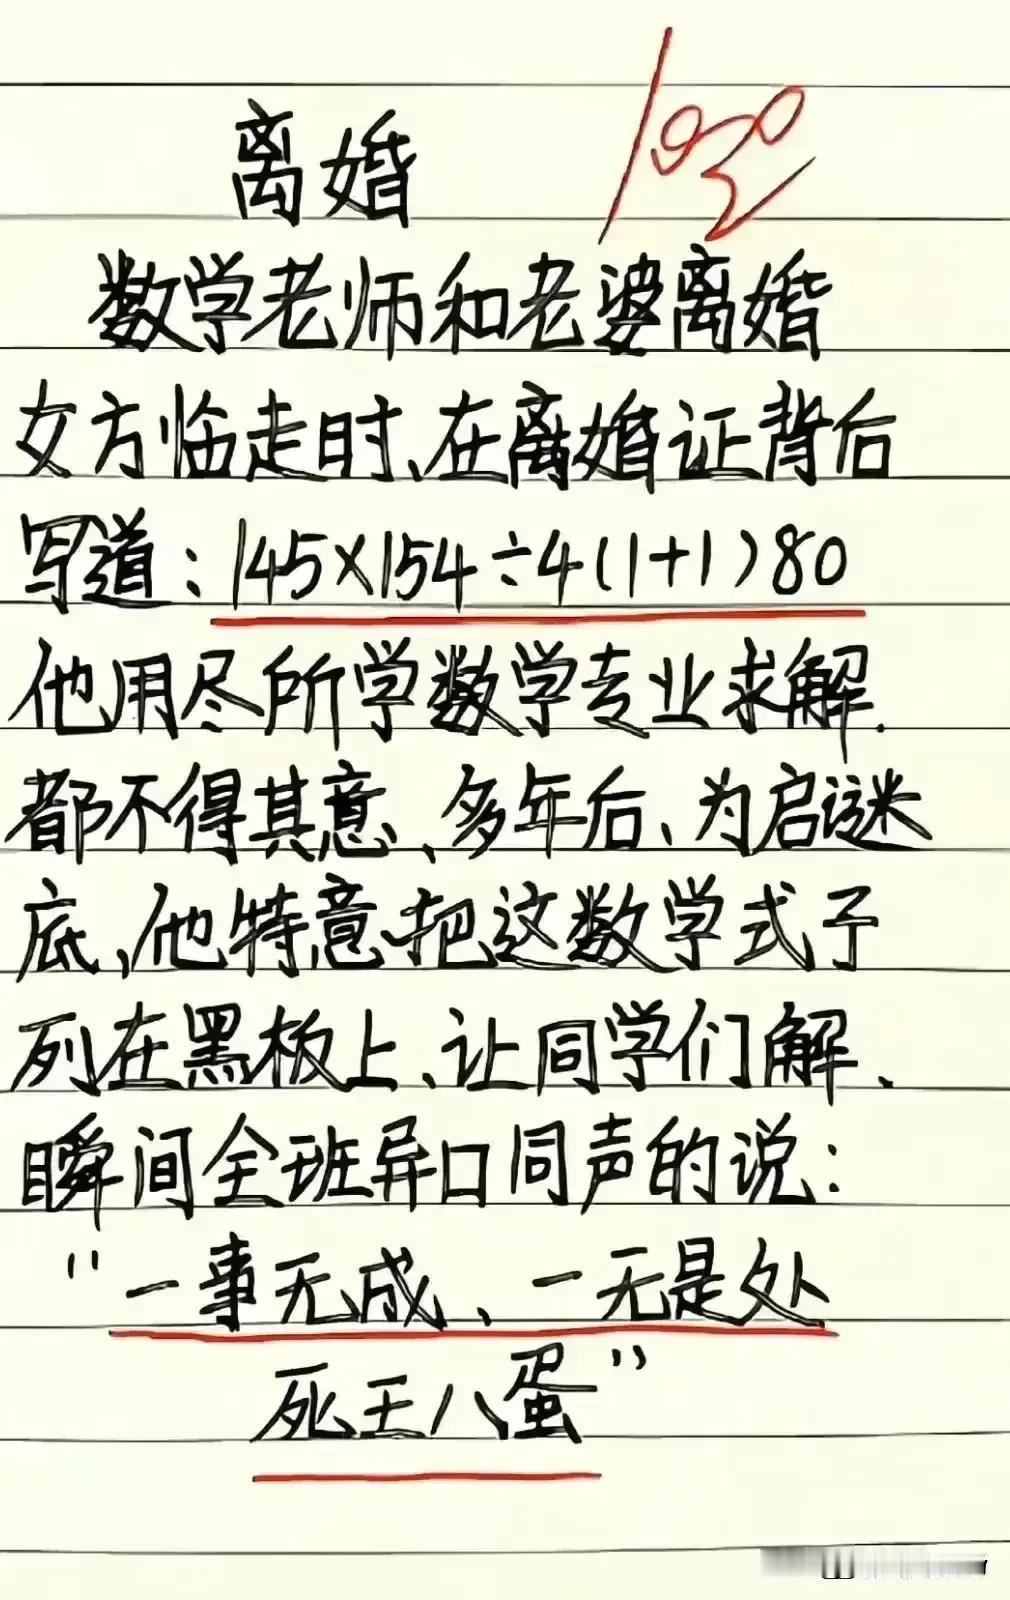 离婚
100
数学老师和老婆离婚
女方临走时、在离婚证背后
写道：145×154÷4(1+1)80
他用尽所学数学专业求解.
都不得其意、多年后、为启谜
底、他特意把这数学式子
列在黑板上、让同学们解、
瞬间全班异口同声的说：
"一事无成、一无是处
死王八蛋"